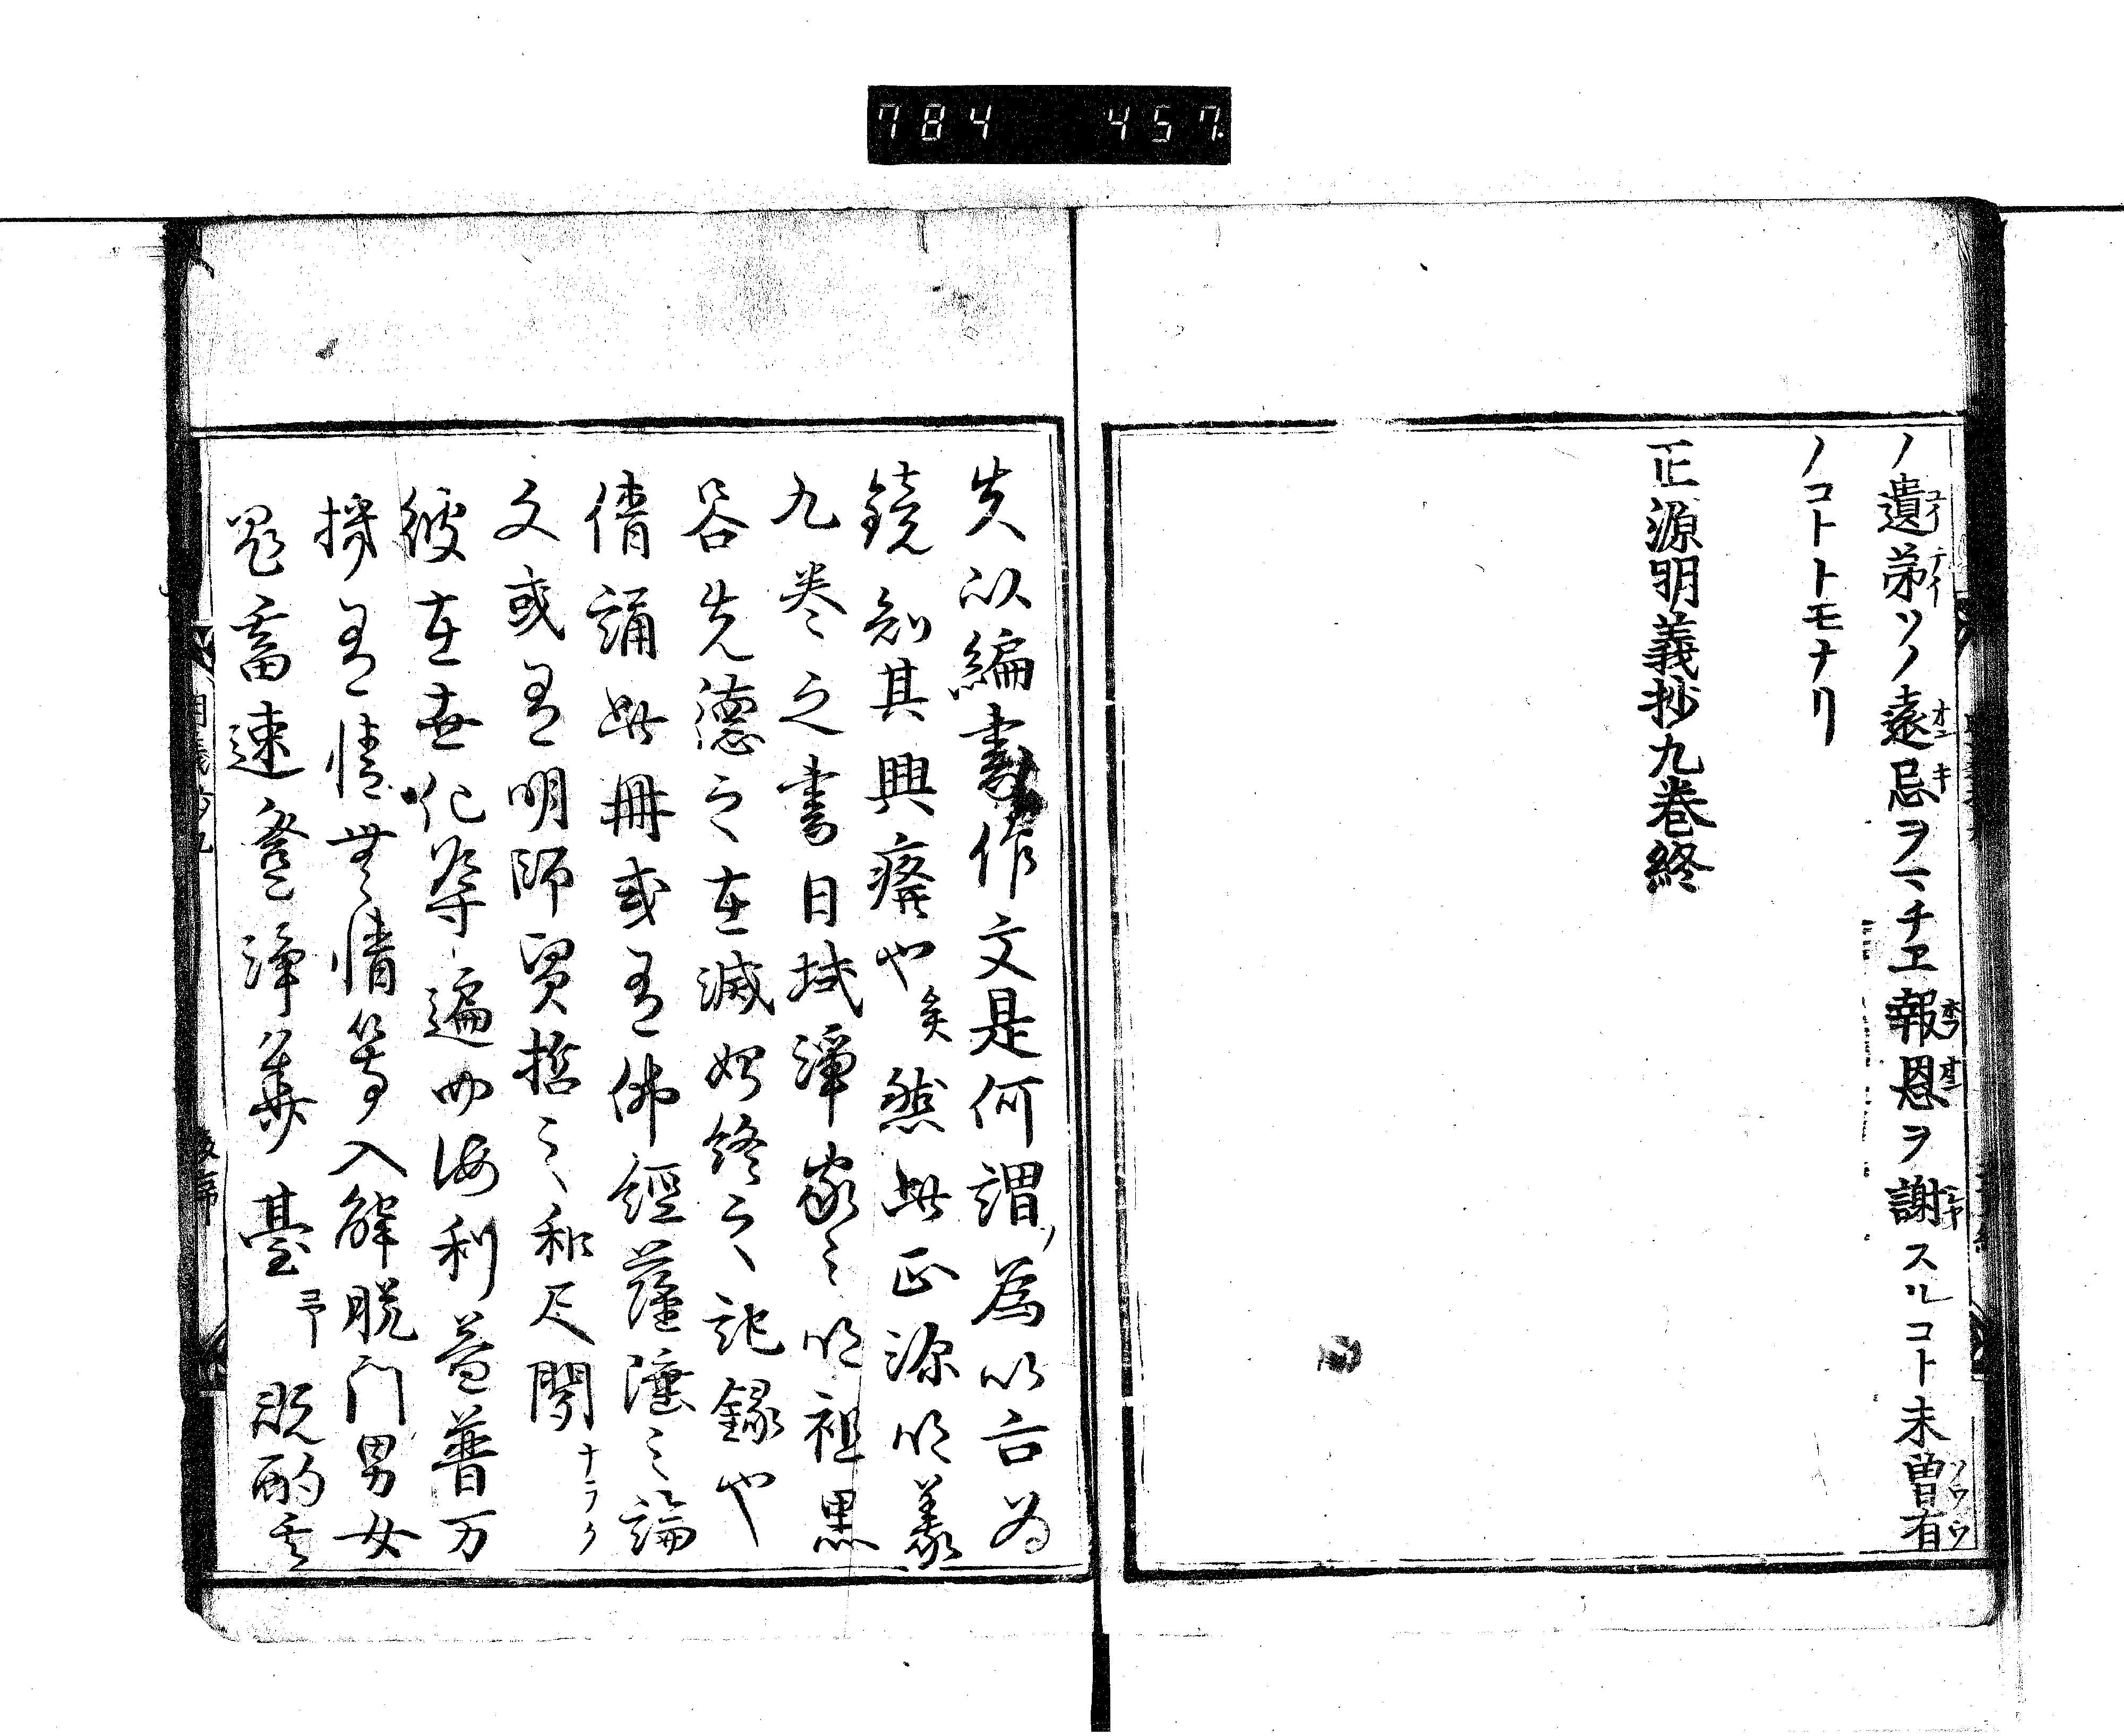 784 457
ノ遺弟ソノ遠忌ヲマチヱ報恩ヲ謝スルコト未曽有
ノコトトモナリ
正源明義抄九巻終
夫以編書作文是何謂為以古為
鏡知其興癈也矣然此正源明義
九巻之書日域浄家之明祖黒
谷先徳之在滅始終之記録也
倩誦此冊或有佛經薩埵之論
文或有明師賢哲之和尺聞ナラク
彼在世化導遍四海利益普万
機有情無情等入解脱門男女
畜速登浄華臺 既酌